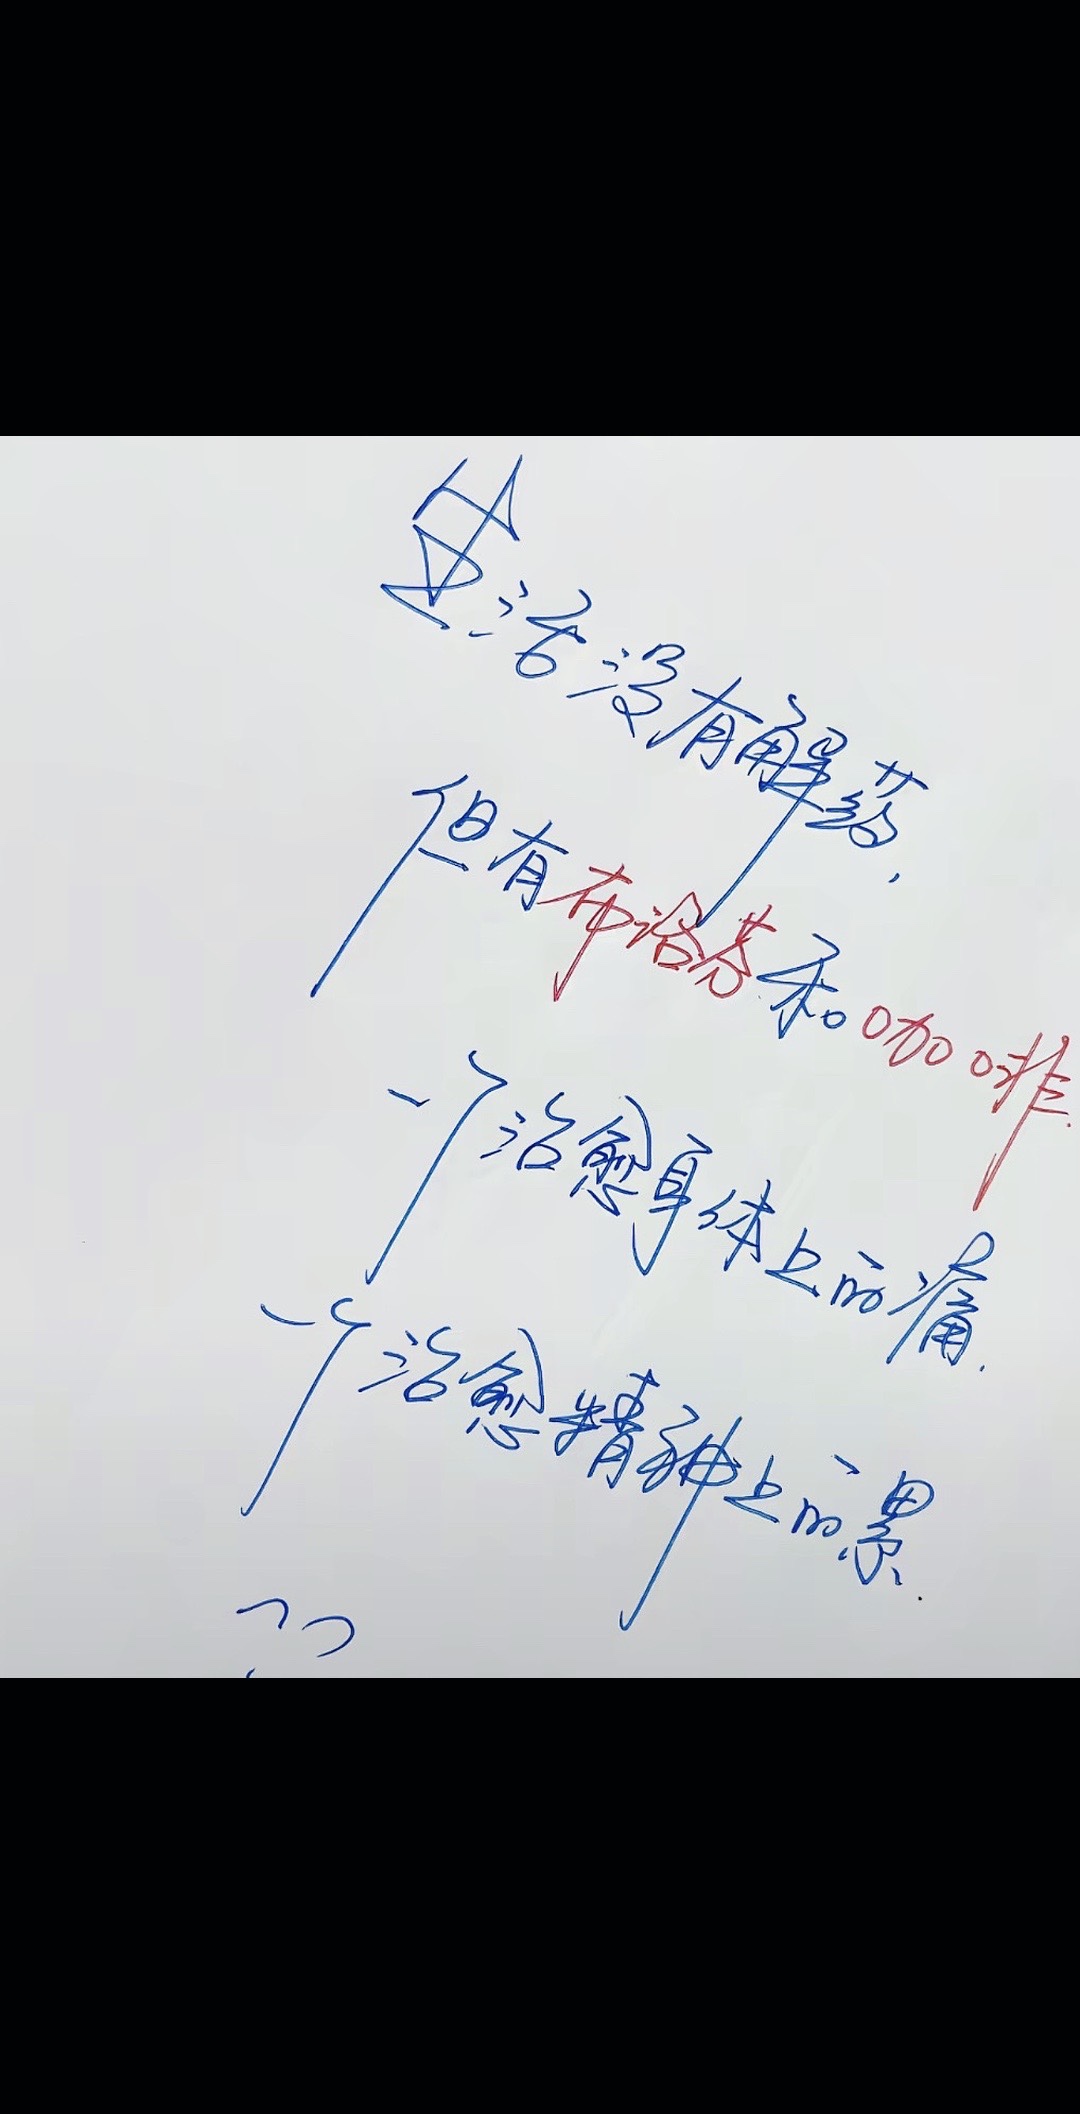 生活没有解药,
但有布洛芬和咖啡.
一个治愈身体上的痛.
一个治愈精神上的累.